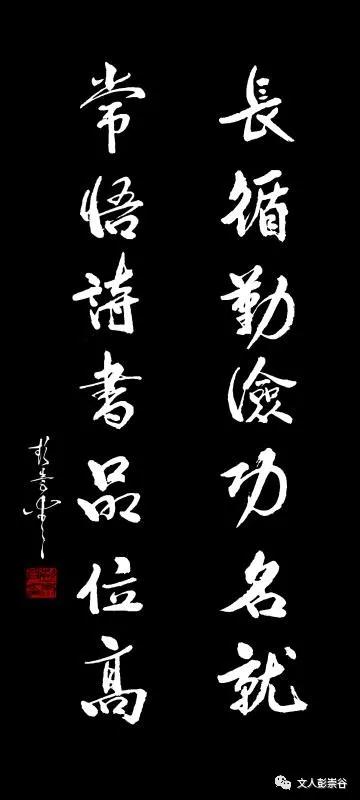 長循勤儉功名就
常悟詩書品位高
彭崇谷
文人彭崇谷